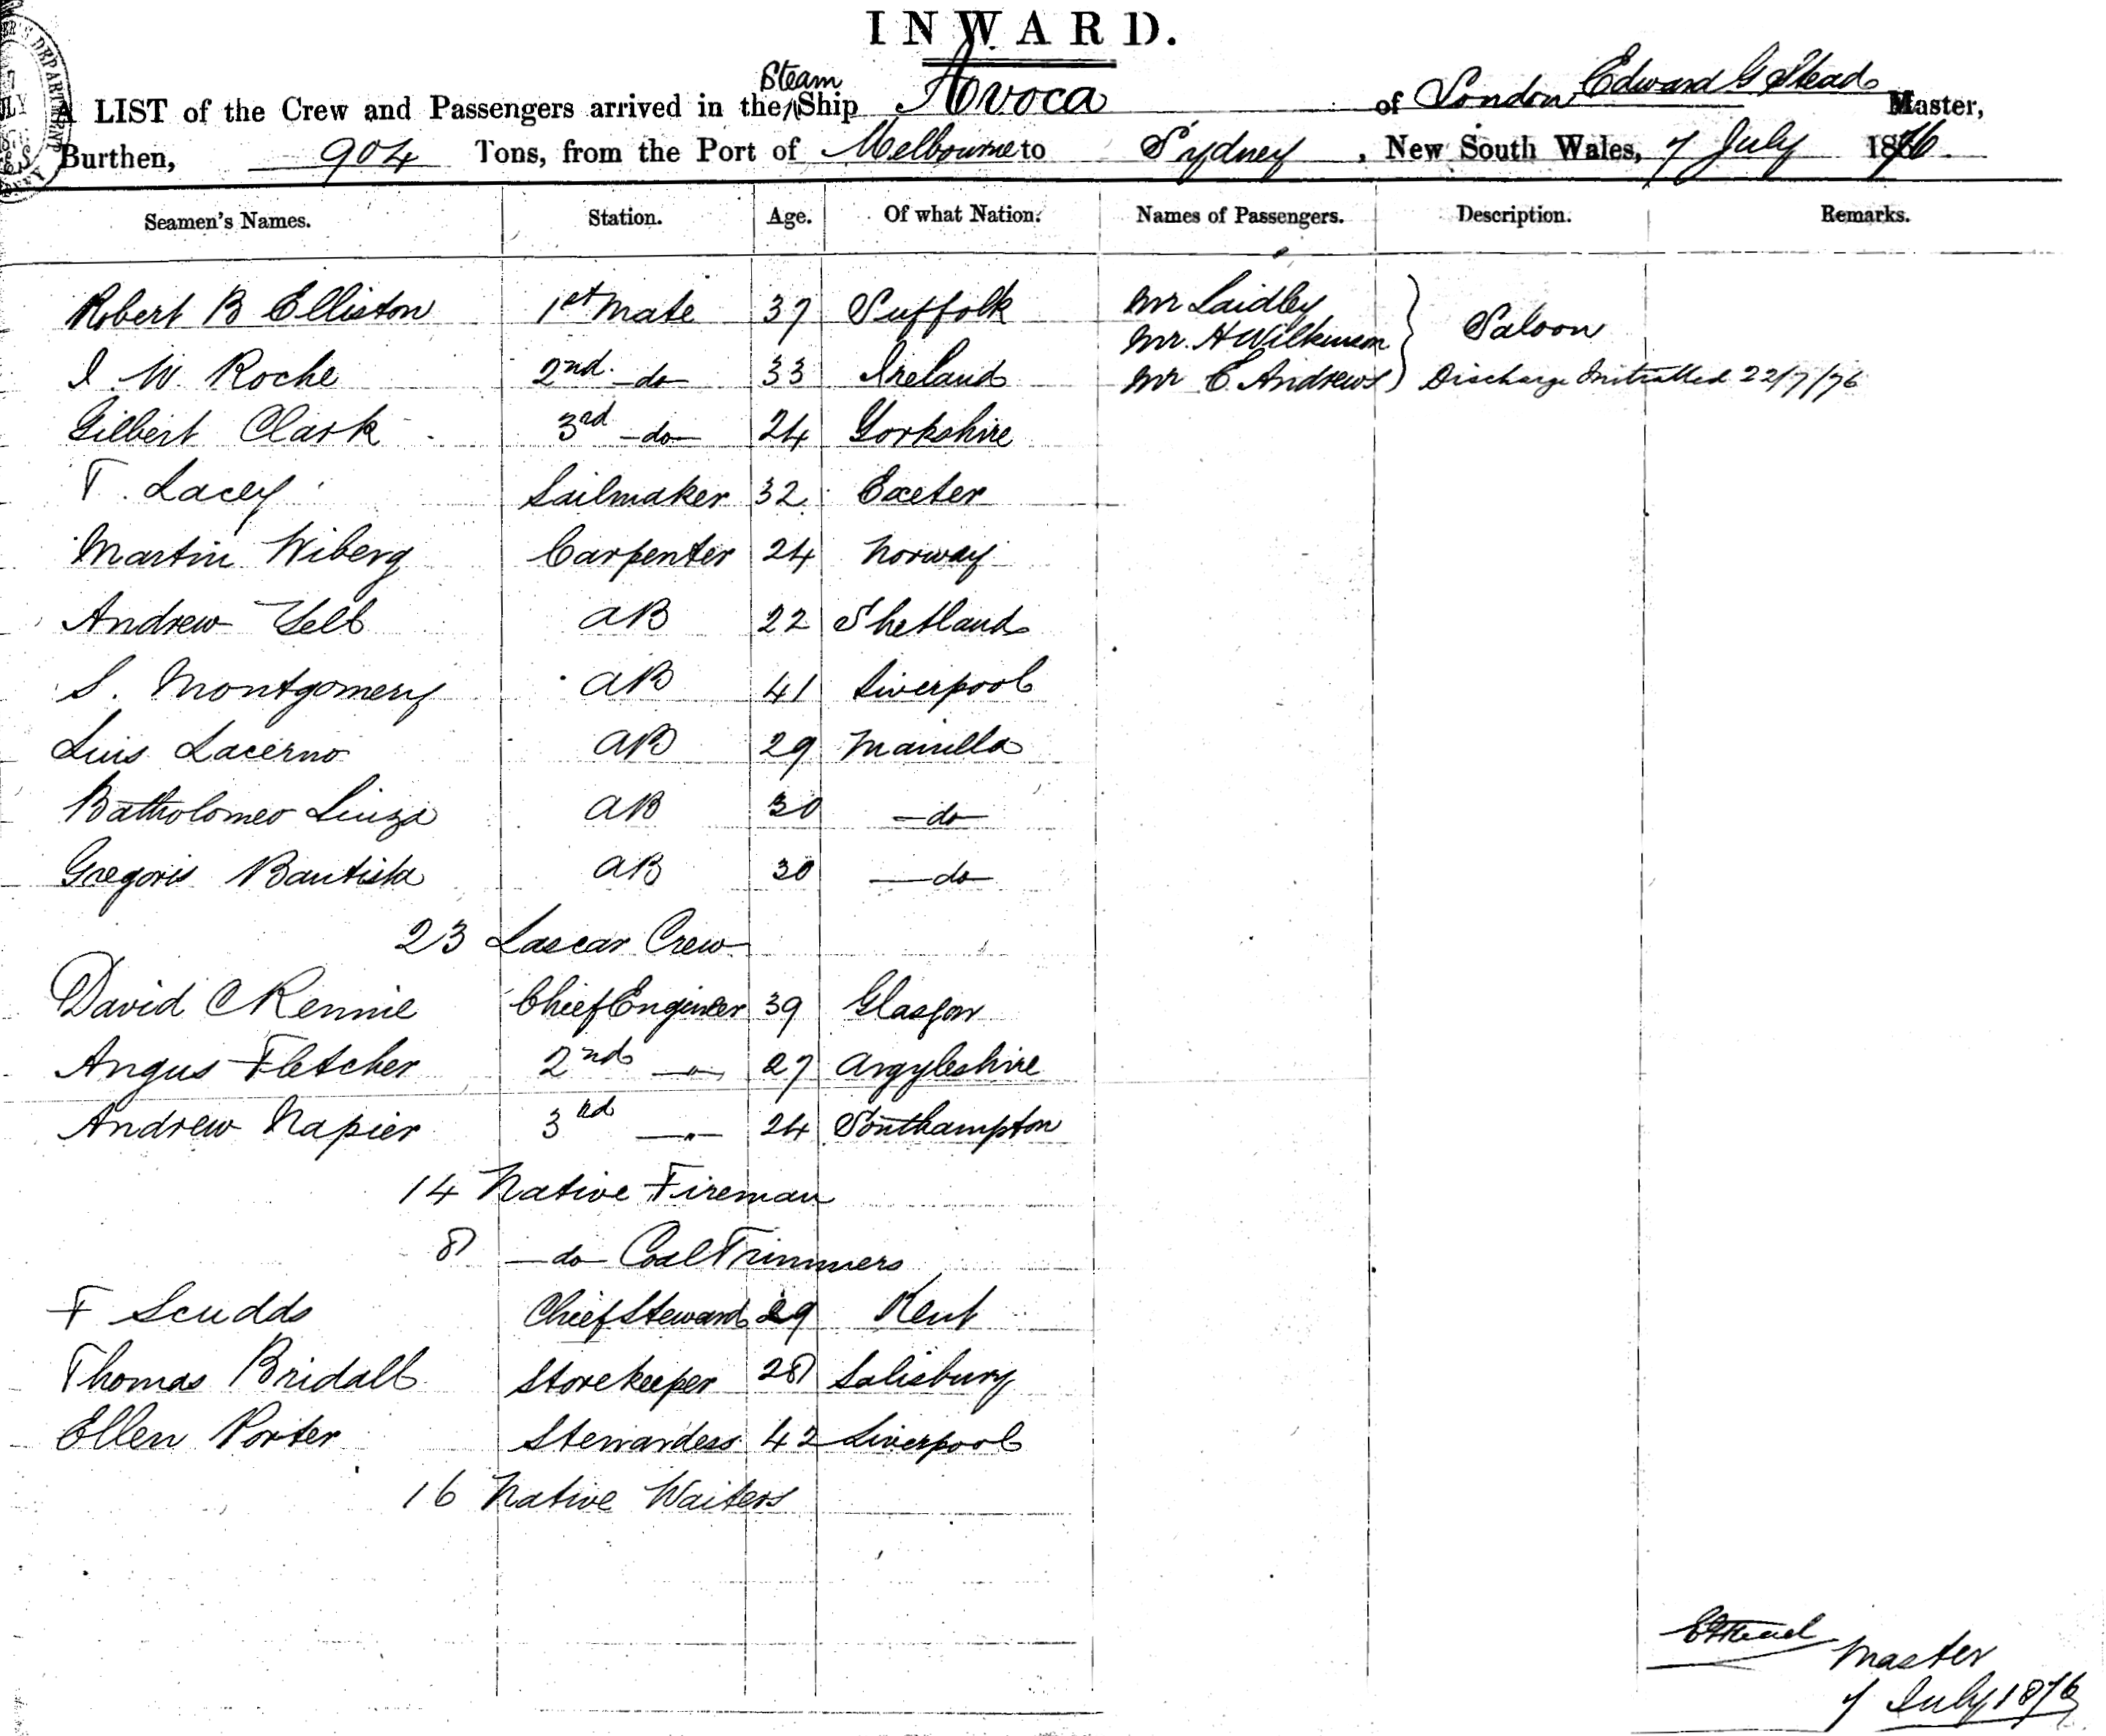 INWARD.
A LIST of the Crew and Passengers arrived in the Steam Ship Avoca of London Edward G Stead Master,
Burthen, 904 Tons, from the Port of Melbourne to Sydney, New South Wales, 7 July 1876.
Seamen's Names. Station. Age. Of what Nation. Names of Passengers. Description. Remarks.
Robert B Elliston 1st Mate 37 Suffolk Mr Laidley
Mr. H Wilkinson Saloon
I. W. Roche 2nd do 33 Ireland Mr C. Andrews Discharge 22/7/76
Gilbert Clark 3rd do 24 Yorkshire
T. Lacey Sailmaker 32 Exeter
Martin Wiberg Carpenter 24 Norway
Andrew Yell AB 22 Shetland
S. Montgomery AB 41 Liverpool
Luis Lacerno AB 29 Manilla
Batholomeo AB 30 do
Gregoris Bautista AB 30 do
23 Lascar Crew
David C Rennie Chief Engineer 39 Glasgow
Angus Fletcher 2nd " 27 Argyleshire
Andrew Napier 3rd " 24 Southampton
14 Native Fireman
8 do Coal Trimmers
F Scudds Chief Steward 29 Kent
Thomas Bridall Storekeeper 28 Salisbury
Ellen Porter Stewardess 42 Liverpool
16 Native Waiters
EGStead Master
7 July 1876